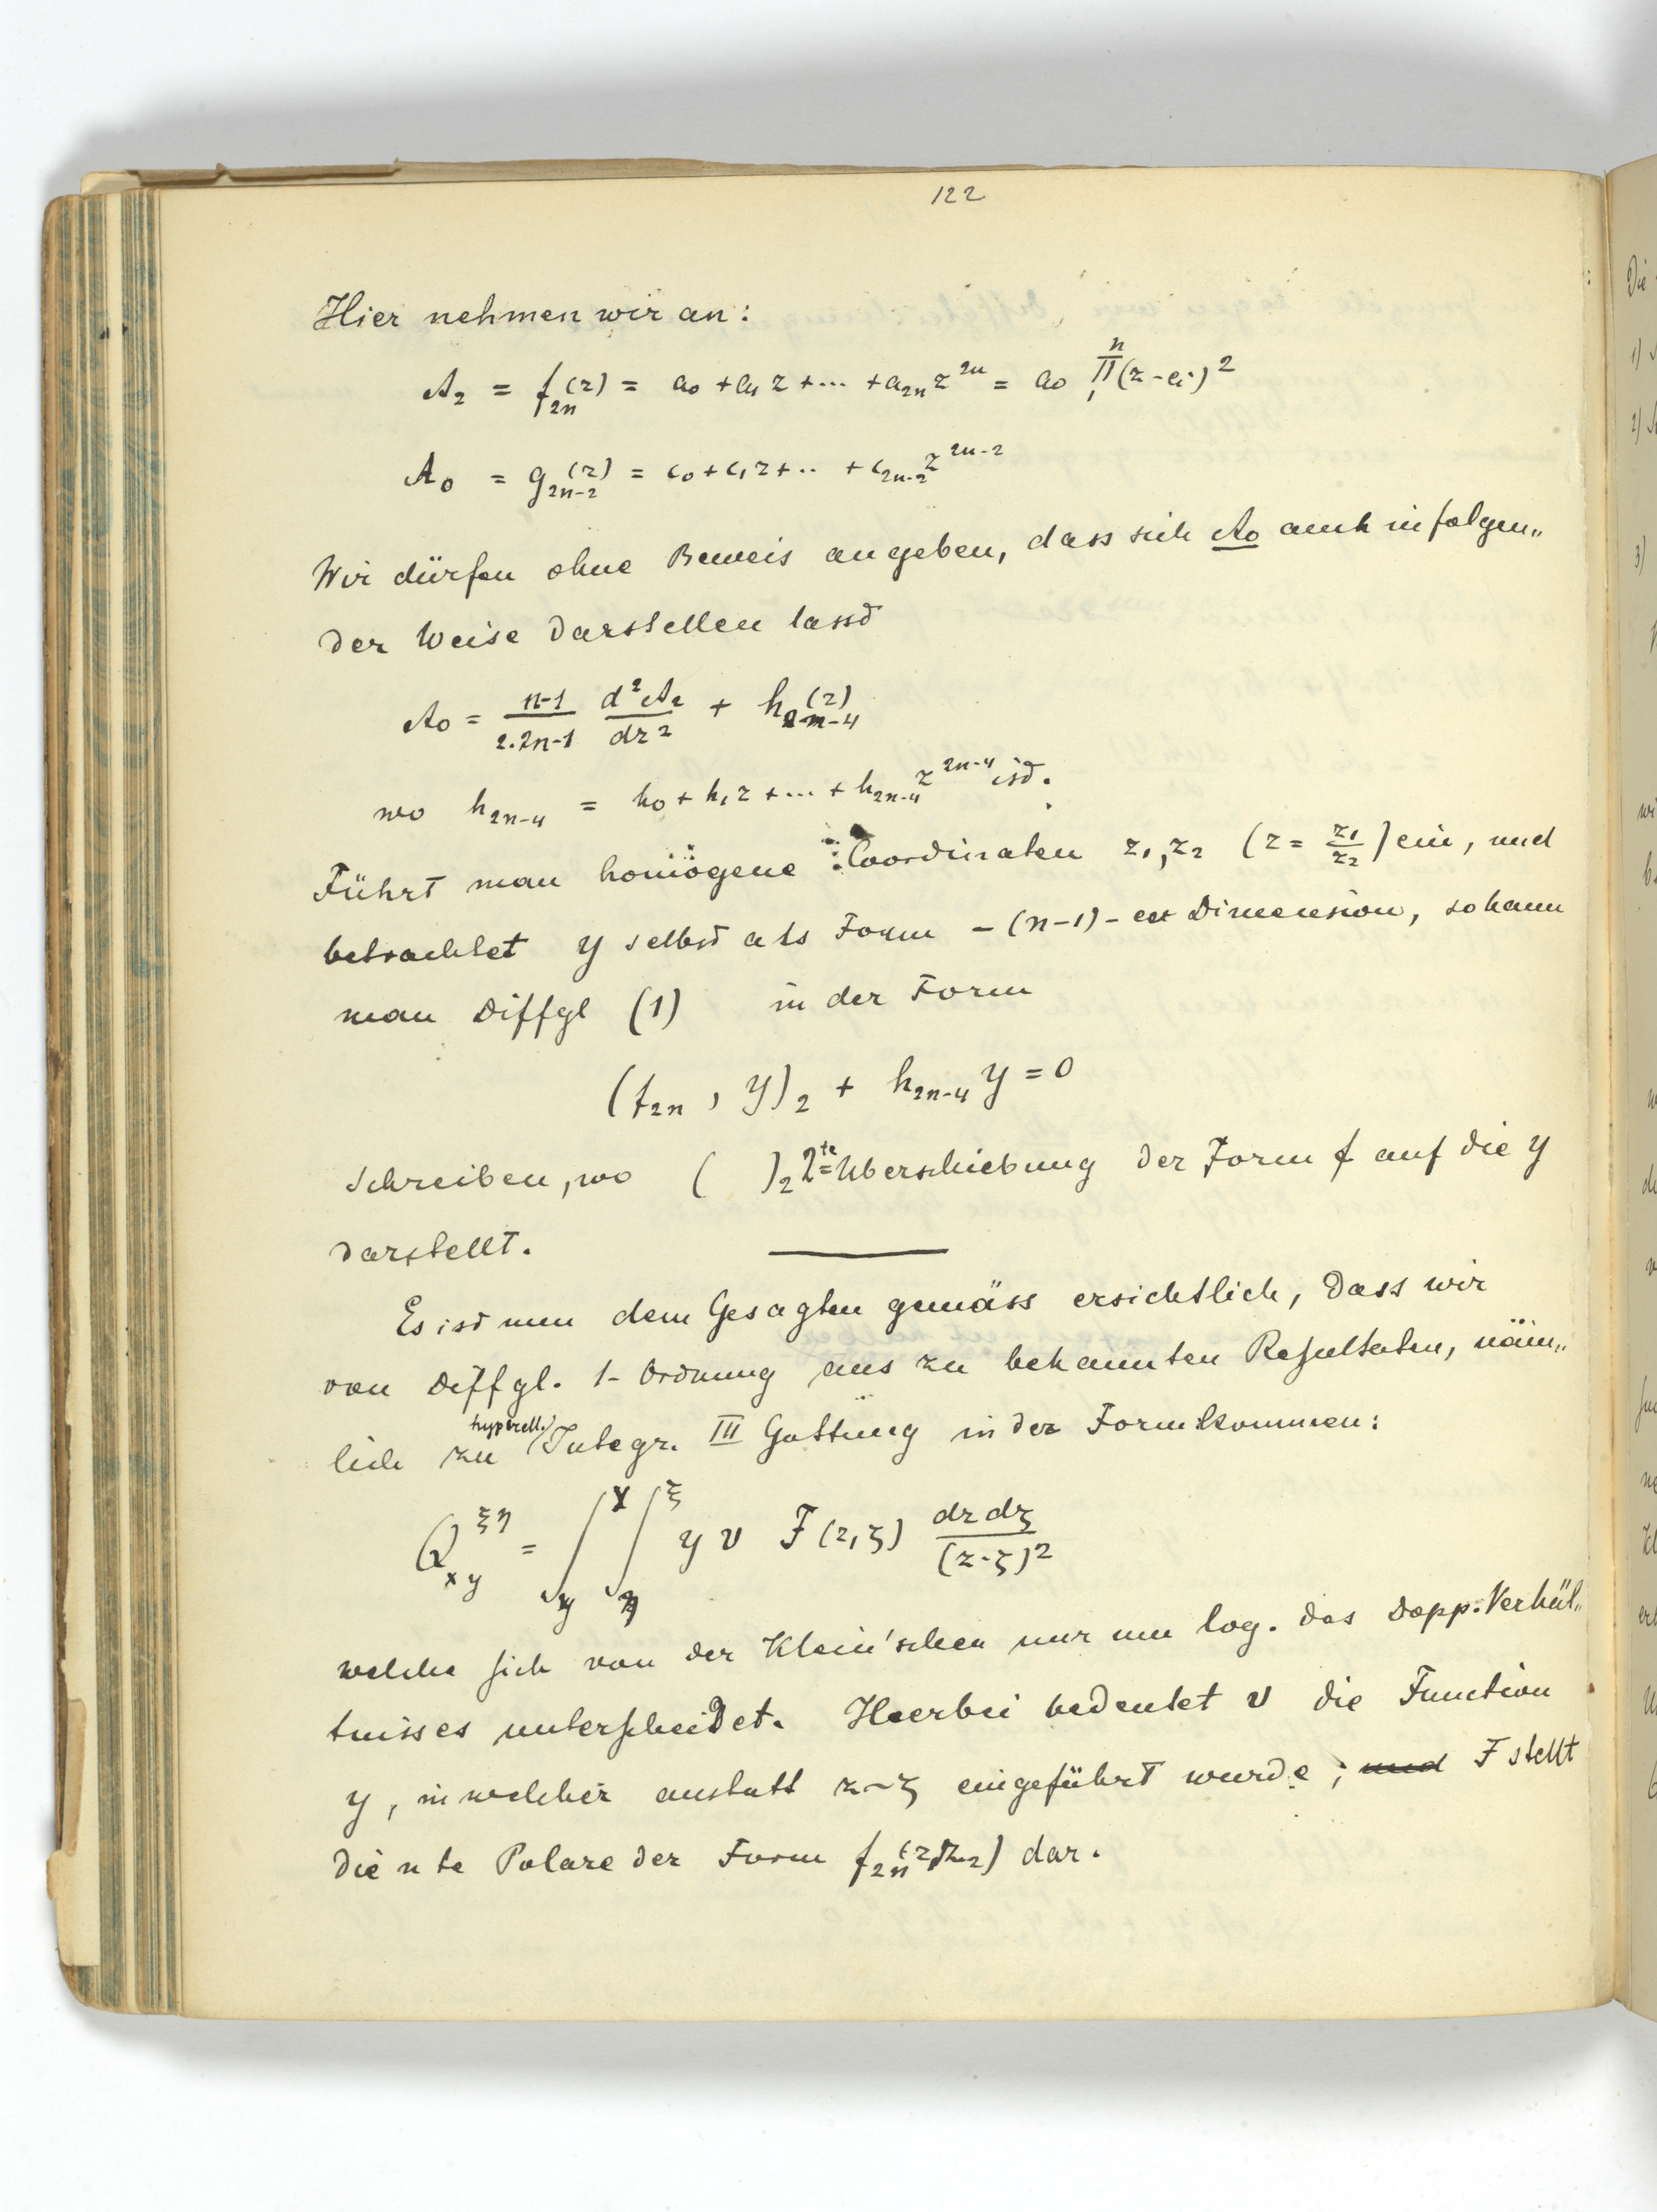 122
Hier nehmen wir an:
A₂ = f₂ₙ(z) = a₀ + a₁ z + ... + a₂ₙ z²ⁿ = a₀ ∏₁ⁿ (z - eᵢ)²
A₀ = g₂ₙ₋₂(z) = c₀ + c₁ z + .. + c₂ₙ₋₂ z²ⁿ⁻²
Wir dürfen ohne Beweis angeben, dass sich A₀ auch in folgen„
der Weise darstellen lasst
A₀ = (n-1)/(2.2n-1) d²A₂/dz² + h₂ₙ₋₄(z)
wo h₂ₙ₋₄ = h₀ + h₁ z + ... + h₂ₙ₋₄ z²ⁿ⁻⁴ ist.
Führt man homogene Coordinaten z₁, z₂ (z = z₁/z₂) ein, und
betrachtet y selbst als Form -(n-1)- er Dimension, so kann
man Diffgl (1) in der Form
(f₂ₙ, y)₂ + h₂ₙ₋₄ y = 0
schreiben, wo ( )₂ 2te Überschiebung der Form f auf die y
darstellt.
Es ist nun dem Gesagten gemäss ersichtlich, dass wir
von Diffgl. 1- Ordnung aus zu bekannten Resultaten, näm„
lich zu hyperell. Integr. III Gattung in der Form kommen:
Q_xy^ξη = ∫_y^x ∫_η^ξ y v F(z,ζ) dz dζ/(z-ζ)²
welche sich von der Klein'schen nur um log. des Dopp. Verhäl„
tnisses unterscheidet. Hierbei bedeutet v die Function
y, in welcher anstatt z ~ ζ eingeführt wurde; und F stellt
die n te Polare der Form f₂ₙ(z₁z₂) dar.